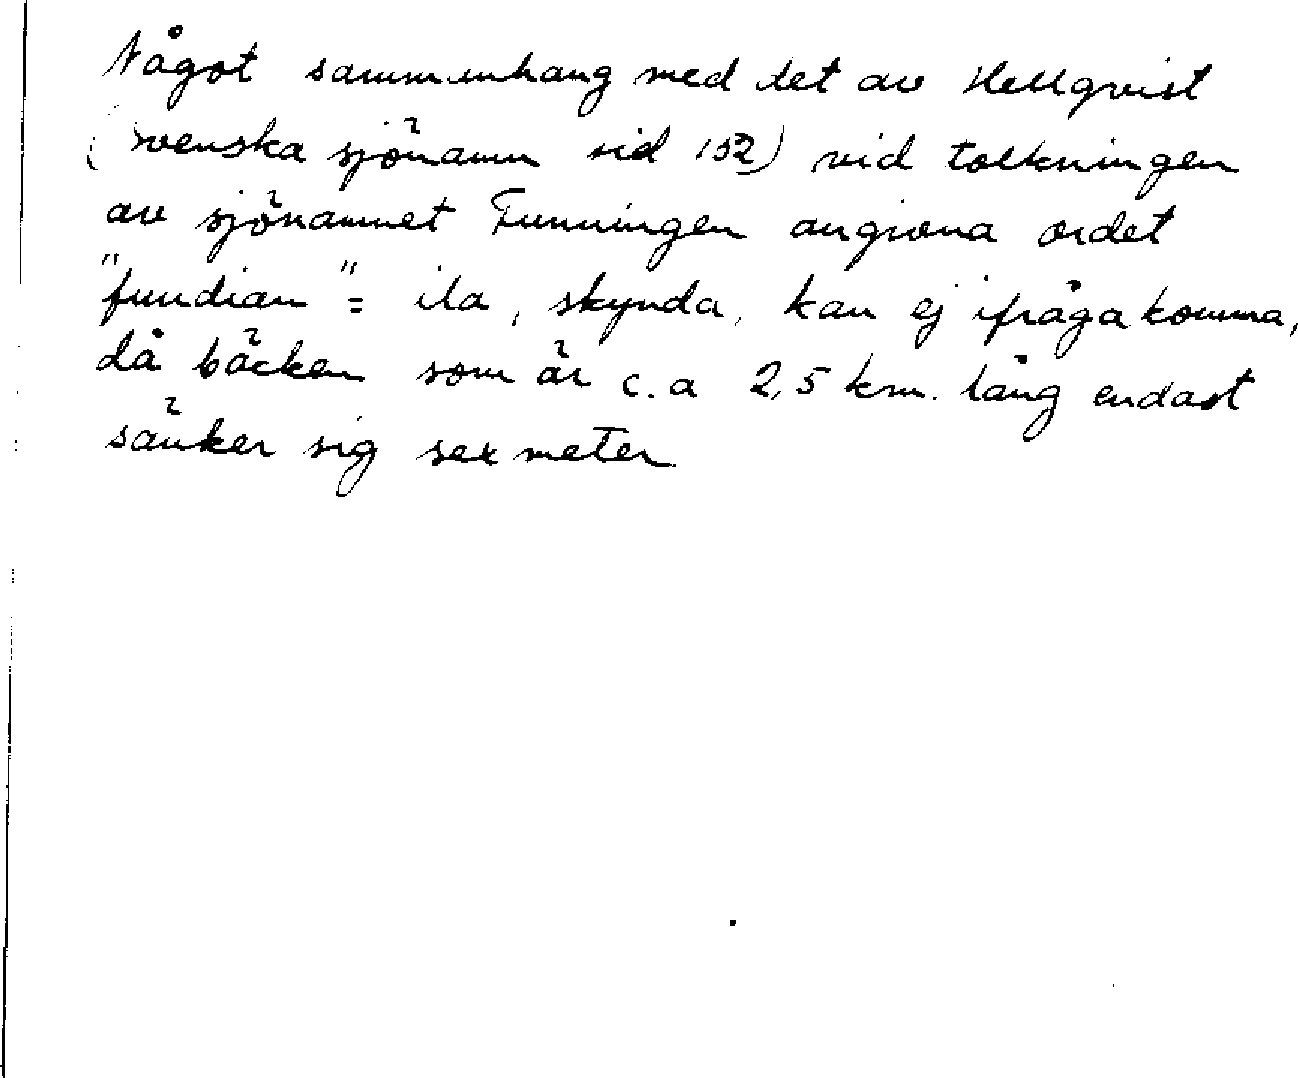 Något sammanhang med det av Hellqvist
(svenska sjönamn sid 152) vid tolkningen
av sjönamnet Funningen angivna ordet
"fundian" = ila, skynda, kan ej ifråga komma,
då bäcken som är c.a 2,5 km. lång endast
sänker sig sex meter